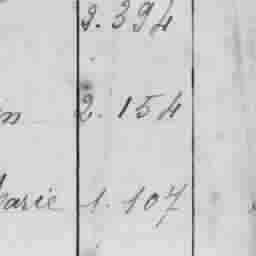 2. 394
2. 154
Marie 1. 107